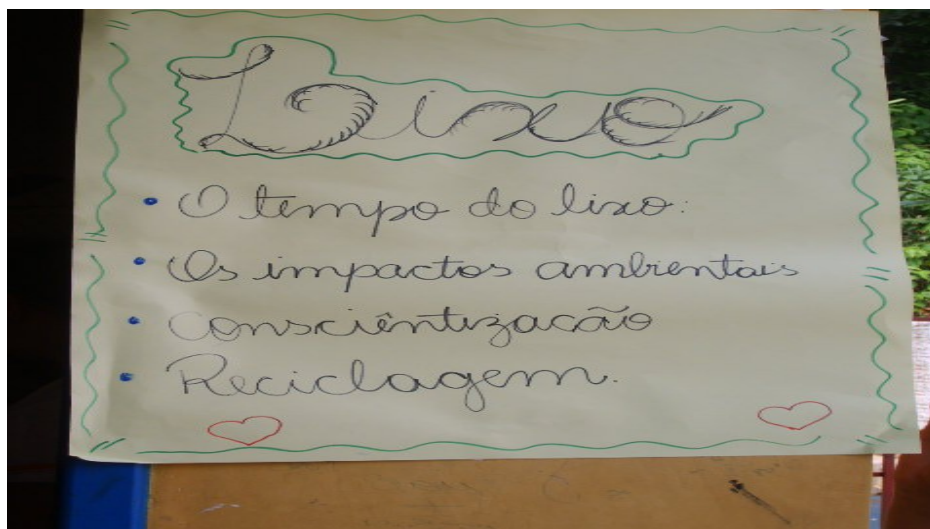 Lixo
• O tempo do lixo:
• Os impactos ambientais
• Consciêntização
• Reciclagem.